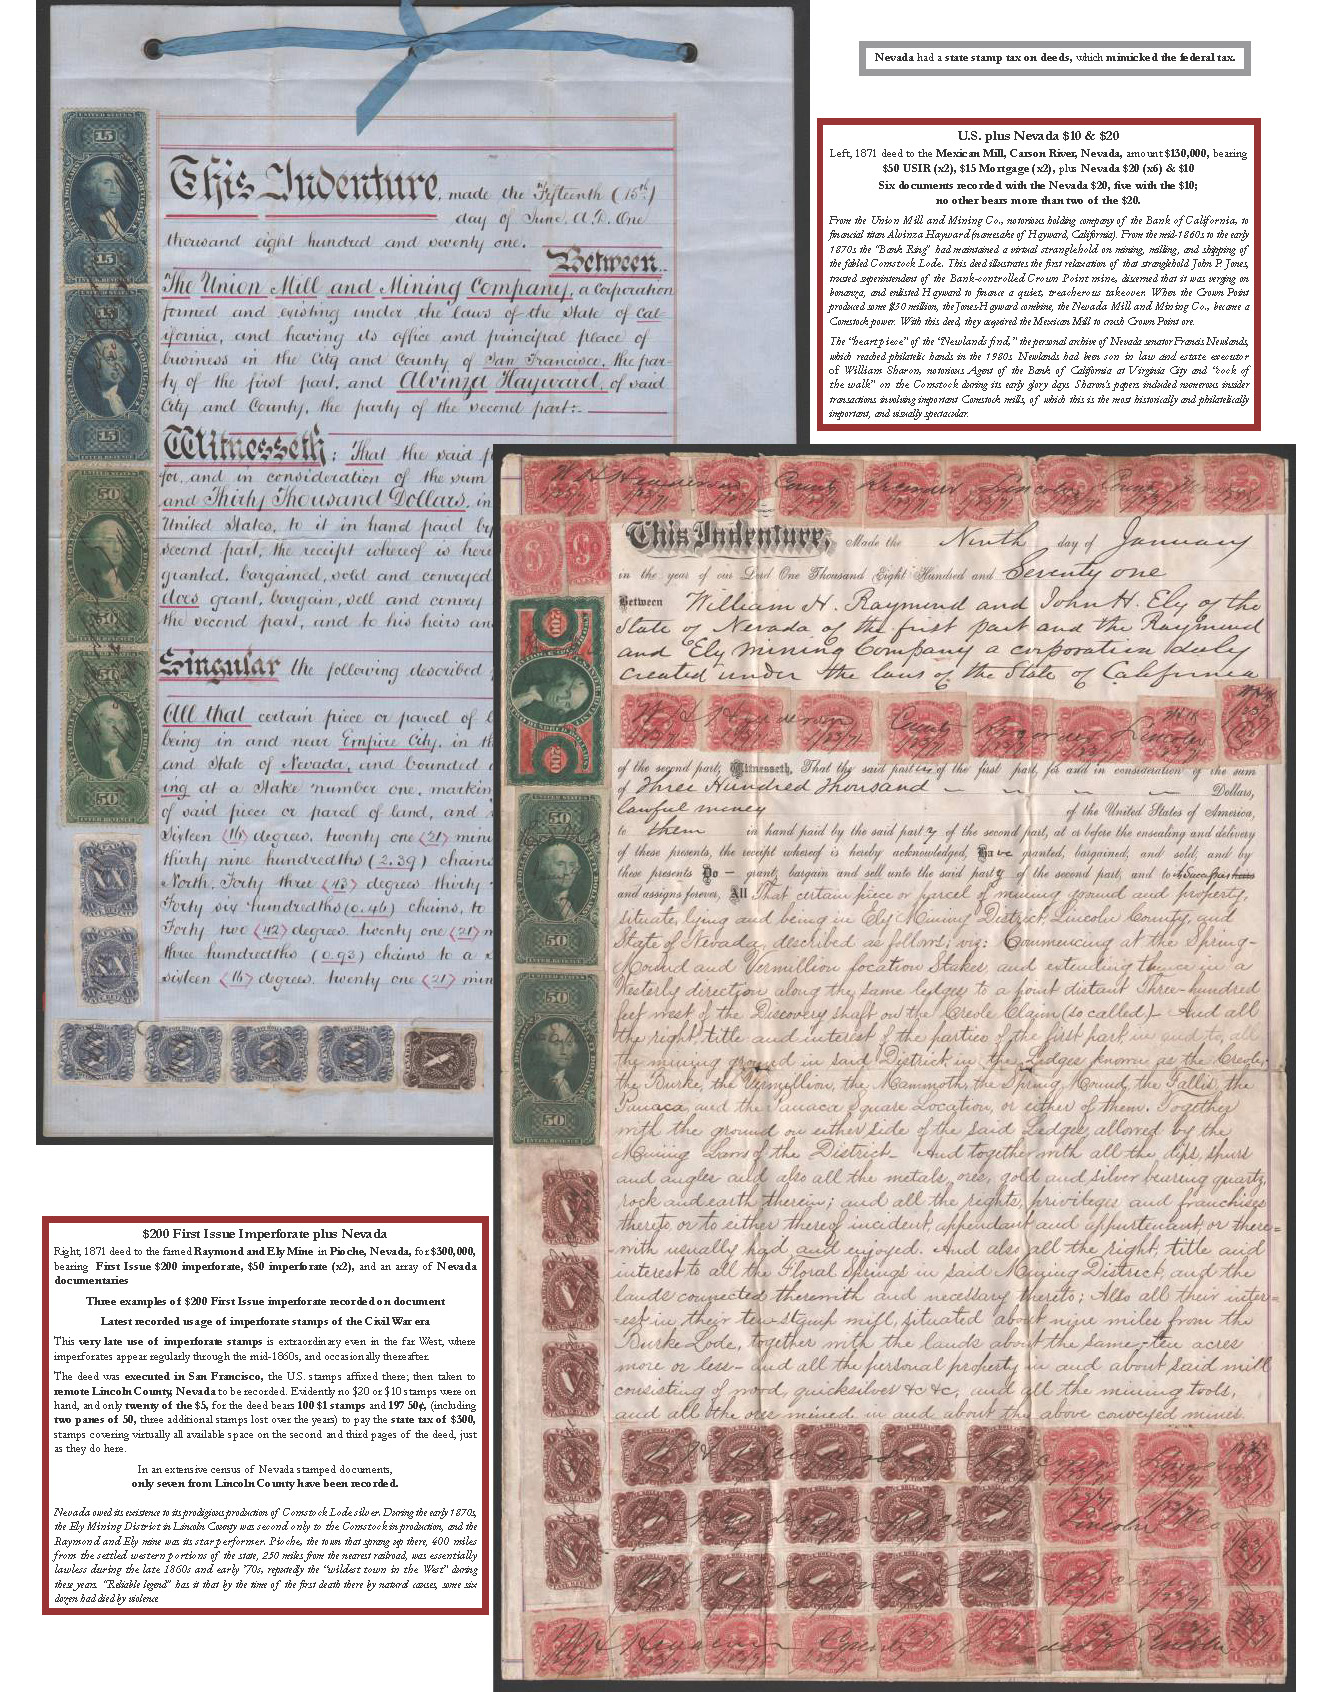 Nevada had a state stamp tax on deeds, which mimicked the federal tax.
U.S. plus Nevada $10 & $20
Left, 1871 deed to the Mexican Mill, Carson River, Nevada, amount $130,000, bearing
$50 USIR (x2), $15 Mortgage (x2), plus Nevada $20 (x6) & $10
Six documents recorded with the Nevada $20, five with the $10;
no other bears more than two of the $20.
From the Union Mill and Mining Co., notorious holding company of the Bank of California, to
financial titan Alvinza Hayward (namesake of Hayward, California). From the mid-1860s to the early
1870s the "Bank Ring" had maintained a virtual stranglehold on mining, milling, and shipping of
the fabled Comstock Lode. This deed illustrates the first relaxation of that stranglehold. John P. Jones,
trusted superintendent of the Bank-controlled Crown Point mine, discerned that it was verging on
bonanza, and enlisted Hayward to finance a quiet, treacherous takeover. When the Crown Point
produced some $30 million, the Jones-Hayward combine, the Nevada Mill and Mining Co., became a
Comstock power. With this deed, they acquired the Mexican Mill to crush Crown Point ore.
The "heart piece" of the "Newlands find," the personal archive of Nevada senator Francis Newlands,
which reached philatelic hands in the 1980s. Newlands had been son in law and estate executor
of William Sharon, notorious Agent of the Bank of California at Virginia City and "cock of
the walk" on the Comstock during its early glory days. Sharon's papers included numerous insider
transactions involving important Comstock mills, of which this is the most historically and philatelically
important, and visually spectacular.
This Indenture, made the Fifteenth (15th)
day of June, A.D. One
thousand eight hundred and seventy one.
Between
The Union Mill and Mining Company, a Corporation
formed and existing under the laws of the State of Cal-
ifornia, and having its office and principal place of
business in the City and County of San Francisco, the par-
ty of the first part, and Alvinza Hayward, of said
City and County, the party of the second part:
Witnesseth: That the said
for, and in consideration of the sum
and Thirty Thousand Dollars, in
United States, to it in hand paid by
second part, the receipt whereof is here
granted, bargained, sold and conveyed
does grant, bargain, sell and convey
the second part, and to his heirs an
Singular the following described
All that certain piece or parcel of
being in and near Empire City, in th
and State of Nevada, and bounded
ing at a Stake number one, markin
of said piece or parcel of land, and
Sixteen (16) degrees, twenty one (21) minu
thirty nine hundredths (2.39) chains
North, Forty three (43) degrees thirty
Forty six hundredths (0.46) chains, to
Forty two (42) degrees twenty one (21) m
three hundredths (0.93) chains to a
sixteen (16) degrees, twenty one (21) min
15
15
15
15
50
50
50
50
This Indenture, Made the Ninth day of January
in the year of our Lord One Thousand Eight Hundred and Seventy one
Between William H. Raymond and John H. Ely of the
State of Nevada of the first part and the Raymond
and Ely Mining Company a corporation duly
created under the laws of the State of California
of the second part, Witnesseth, That the said parties of the first part, for and in consideration of the sum
of Three Hundred Thousand Dollars,
lawful money of the United States of America,
to them in hand paid by the said party of the second part, at or before the ensealing and delivery
of these presents, the receipt whereof is hereby acknowledged, Have granted, bargained, and sold, and by
these presents Do grant, bargain and sell unto the said party of the second part, and to
and assigns forever, All That certain piece or parcel of mining ground and property,
situate, lying and being in Ely Mining District, Lincoln County, and
State of Nevada, described as follows; viz: Commencing at the Spring-
Mound and Vermillion location Stakes, and extending thence in a
Westerly direction along the same ledges to a point distant Three-hundred
feet west of the Discovery shaft on the Creole Claim (so called)- And all
the right, title and interest of the parties of the first part in and to, all
the mining ground in said District, in the Ledges known as the Creole,
the Burke, the Vermillion, the Mammoth, the Spring Mound, the Fallis, the
Panaca, and the Panaca Square Location, or either of them. Together
with the ground on either side of the said Ledges, allowed by the
Mining Laws of the District- And together with all the dips, spurs
and angles and also all the metals, ores, gold and silver bearing quartz,
rock and earth therein; and all the rights, privileges and franchises
thereto, or to either thereof incident, appendant and appurtenant, or there=
-with usually had and enjoyed. And also all the right, title and
interest to all the Floral Springs in said Mining District, and the
lands connected therewith and necessary thereto; Also all their inter=
=est in their ten-stamp mill, situated about nine miles from the
Burke Lode, together with the lands about the same-ten acres
more or less- and all the personal property in and about said mill
consisting of wood, quicksilver &c &c, and all the mining tools,
and all the ores mined in and about the above conveyed mines.
200
200
50
50
50
50
$200 First Issue Imperforate plus Nevada
Right, 1871 deed to the famed Raymond and Ely Mine in Pioche, Nevada, for $300,000,
bearing First Issue $200 imperforate, $50 imperforate (x2), and an array of Nevada
documentaries
Three examples of $200 First Issue imperforate recorded on document
Latest recorded usage of imperforate stamps of the Civil War era
This very late use of imperforate stamps is extraordinary even in the far West, where
imperforates appear regularly through the mid-1860s, and occasionally thereafter.
The deed was executed in San Francisco, the U.S. stamps affixed there; then taken to
remote Lincoln County, Nevada to be recorded. Evidently no $20 or $10 stamps were on
hand, and only twenty of the $5, for the deed bears 100 $1 stamps and 197 50¢, (including
two panes of 50, three additional stamps lost over the years) to pay the state tax of $300,
stamps covering virtually all available space on the second and third pages of the deed, just
as they do here.
In an extensive census of Nevada stamped documents,
only seven from Lincoln County have been recorded.
Nevada owed its existence to its prodigious production of Comstock Lode silver. During the early 1870s,
the Ely Mining District in Lincoln County was second only to the Comstock in production, and the
Raymond and Ely mine was its star performer. Pioche, the town that sprang up there, 400 miles
from the settled western portions of the state, 250 miles from the nearest railroad, was essentially
lawless during the late 1860s and early '70s, reputedly the "wildest town in the West" during
these years. "Reliable legend" has it that by the time of the first death there by natural causes, some six
dozen had died by violence.